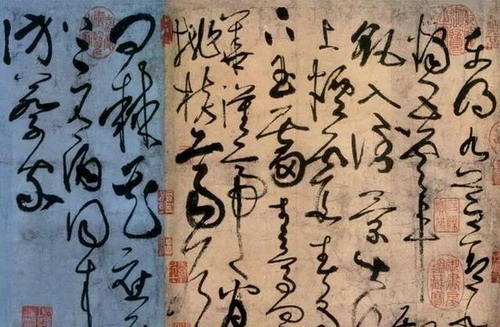 東明九芝蓋
燭五雲車
飖入倒景出
上煙霞春泉
下玉霤青鳥向
華漢帝看
桃核齊侯
問棘花應
上元酒同来
訪蔡家